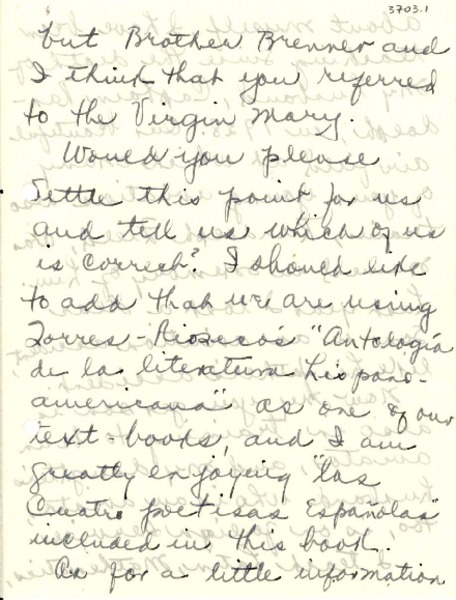 3703.1
but Brother Brenner and
I think that you referred
to the Virgin Mary.
Would you please
settle this point for us
and tell us which of us
is correct? I should like
to add that we are using
Torres-Rioseco's "Antología
de la literatura hispano-
americana" as one of our
text-books, and I am
greatly enjoying "las
Cuatro poetisas Españolas"
included in this book.
As for a little information